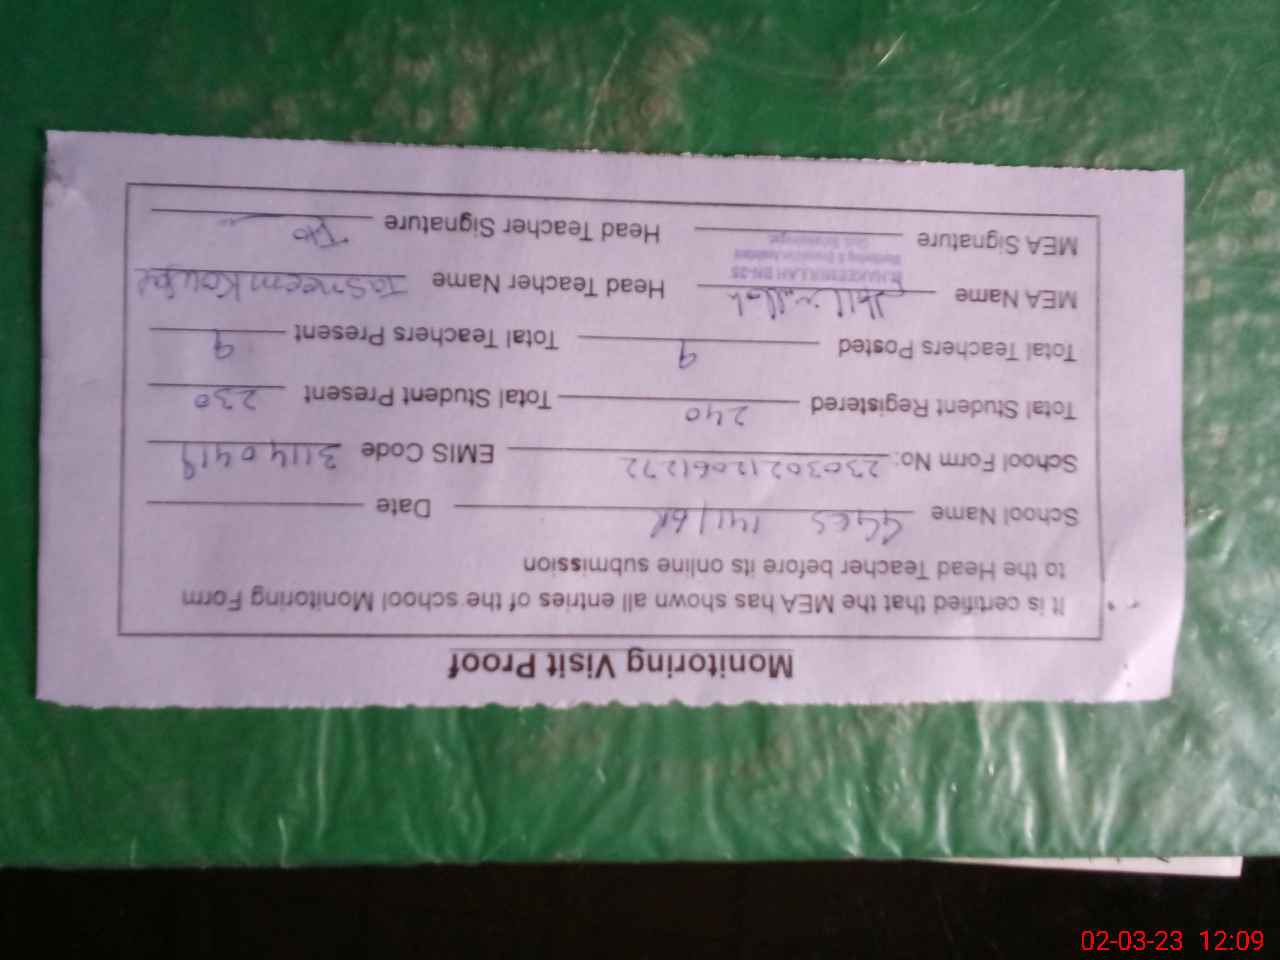 Monitoring Visit Proof
It is certified that the MEA has shown all entries of the school Monitoring Form
to the Head Teacher before its online submission
School Name GGES 141/6R Date
School Form No: 23030212061272 EMIS Code 31140419
Total Student Registered 240 Total Student Present 230
Total Teachers Posted 9 Total Teachers Present 9
MEA Name Head Teacher Name Tasneem Kousar
MEA Signature Head Teacher Signature
02-03-23 12:09